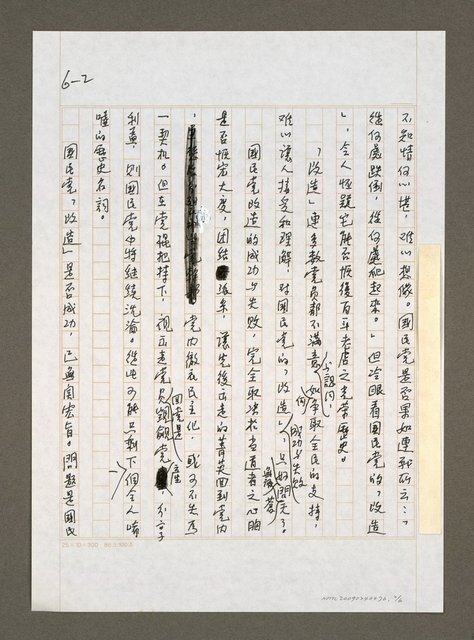 6-2
不知情何以堪,難以想像。國民黨是否果如連戰所云:「
從何處跌倒,從何處爬起來。」但冷眼看國民黨的「改造
」,令人懷疑它能否恢復百年老店之光榮歷史。
「改造」連多數黨員都不滿意,公說何如爭取全民的支持,
難以讓人接受和理解,對國民黨的「改造」,只好問天了。
國民黨改造的成功與失敗,完全取決於當道者之心胸
是否恢宏大度,團結派系,讓先後出走的菁英回到黨內
,黨內徹底民主化,或可不失為
一契机。但在黨棍把持下,視出走黨員覬覦黨產,分一予
回黨是
利益,則國民黨內將繼續沈淪。從此可能只剩下個令人唏
噓的歷史名詞。
國民黨「改造」是否成功,已無關宏旨。問題是國民
成功与失敗
25×10=300
NMTL20090240076, 2/6